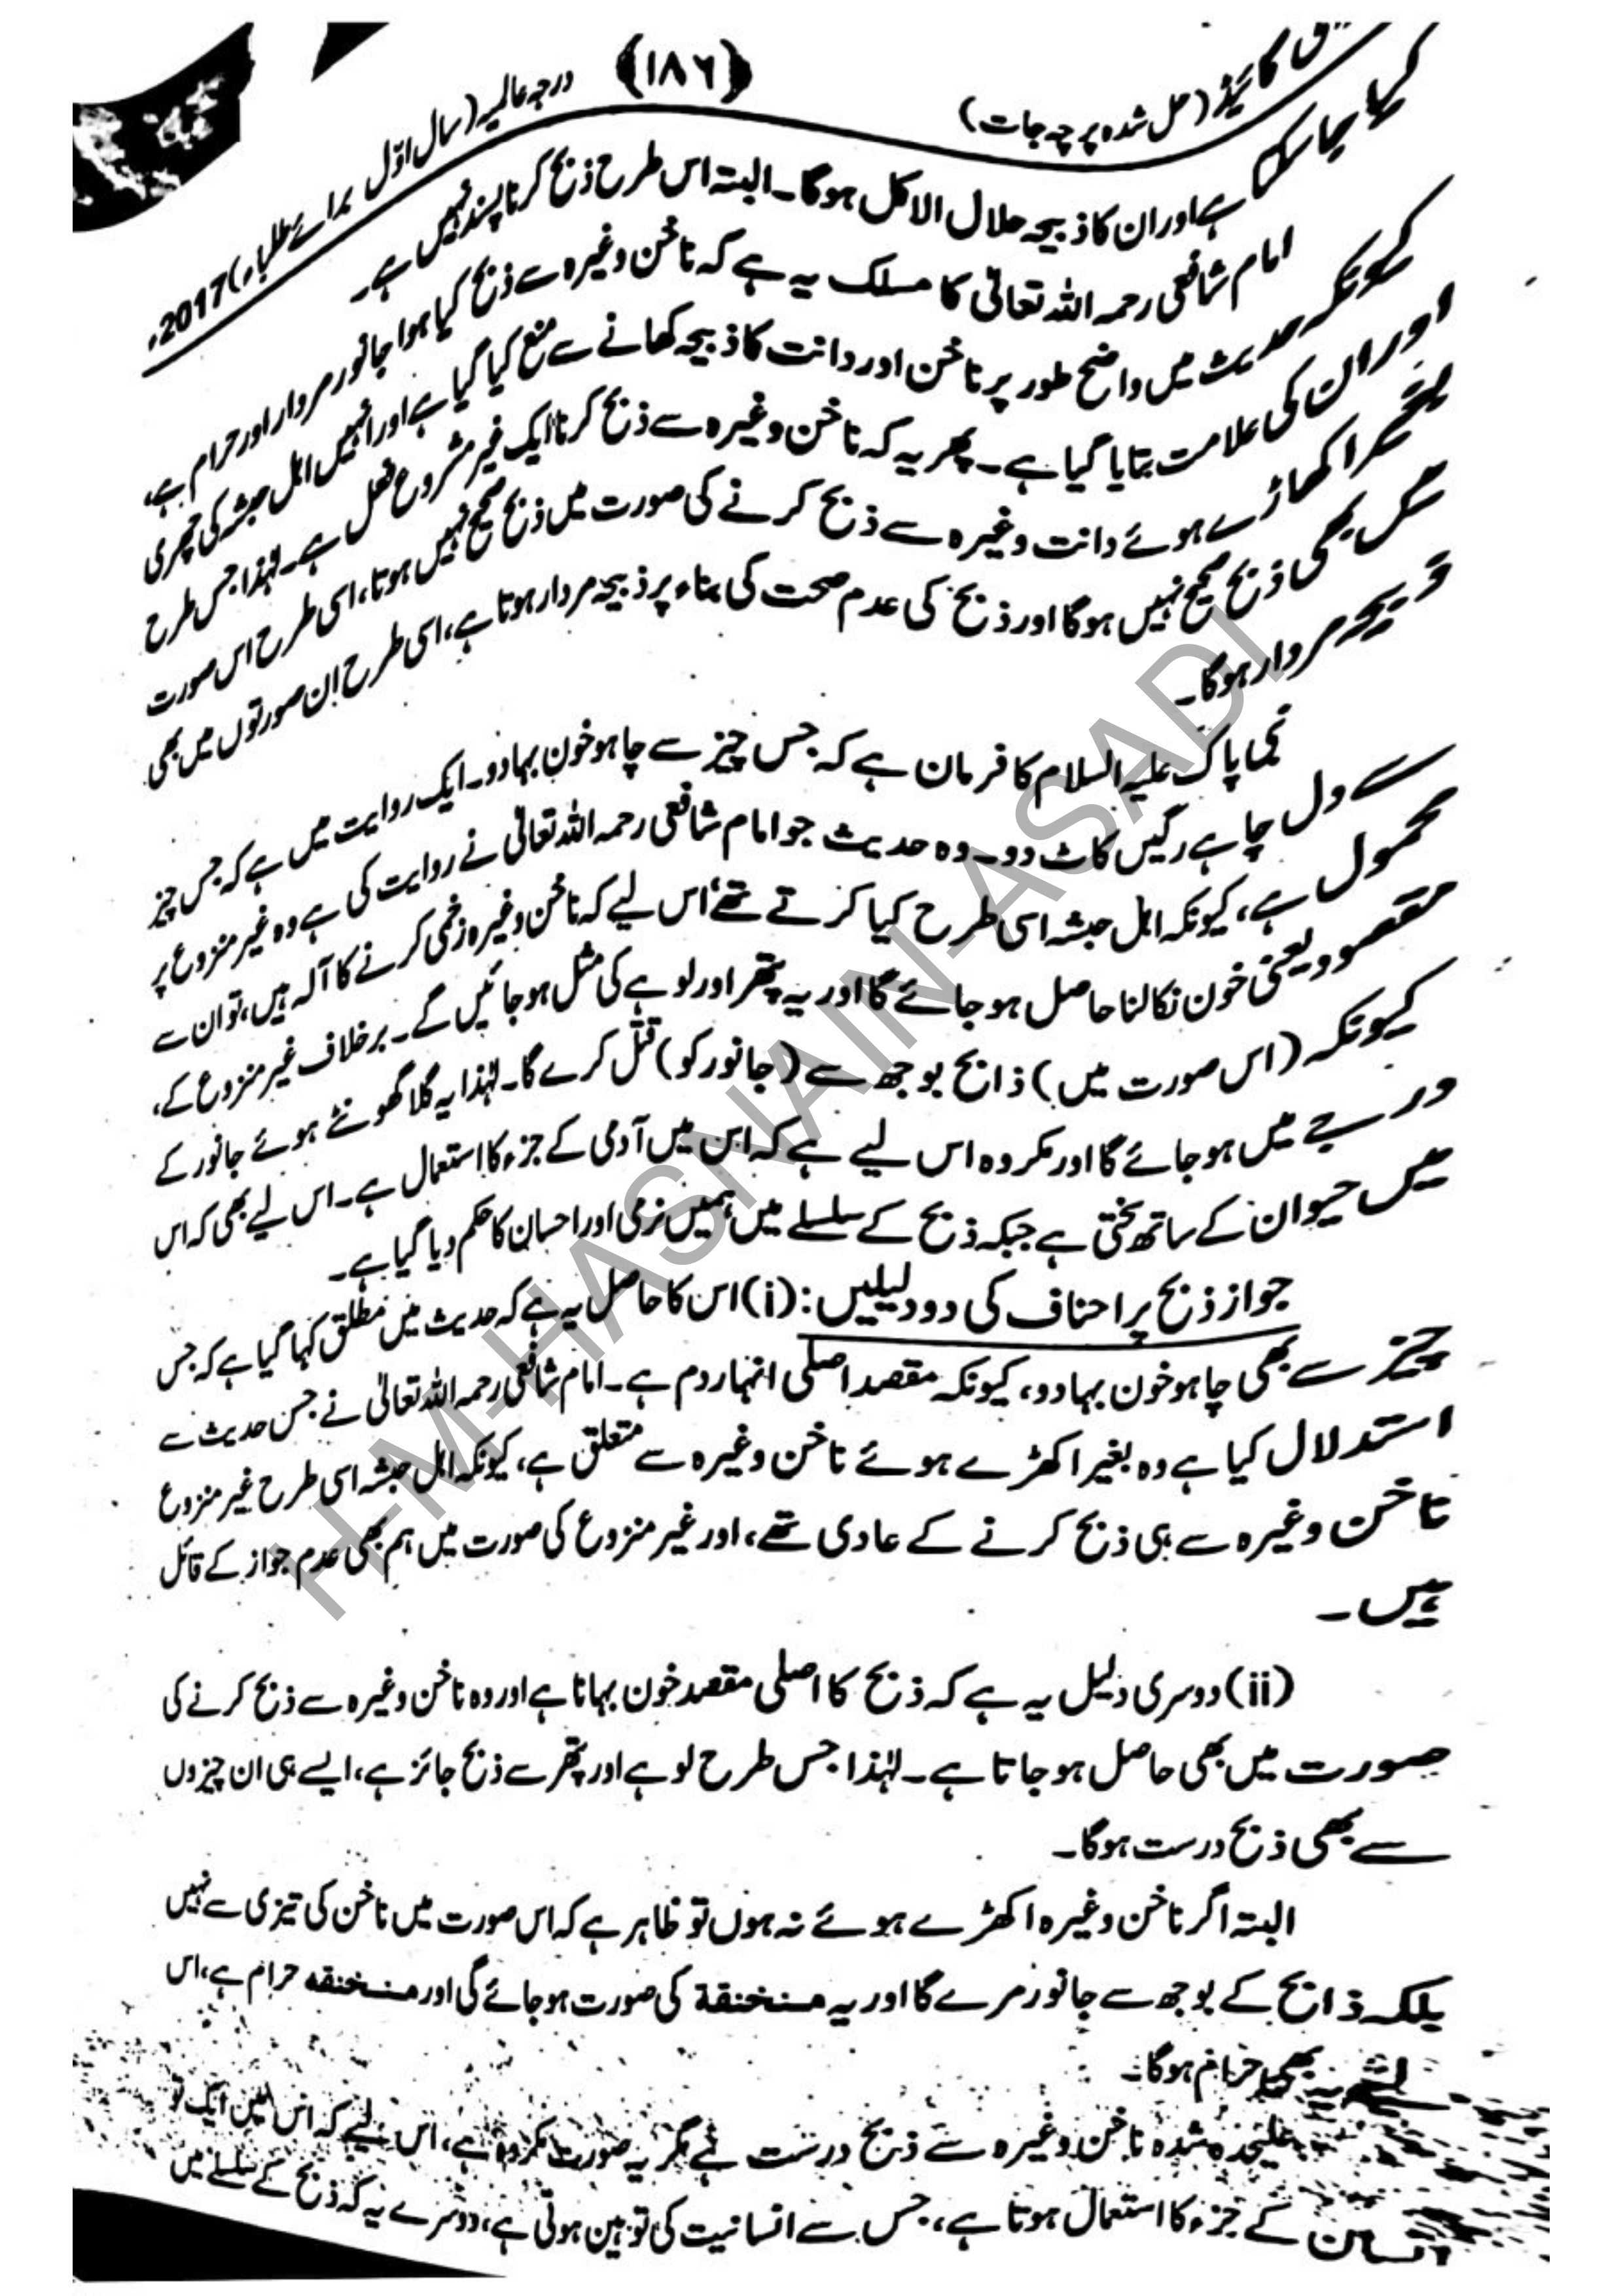 گائیڈ (حل شدہ پرچہ جات) (۱۸۶) درجہ عالمیہ (سال اوّل برائے طلباء) 2017ء
کیا جا سکتا ہے اور ان کا ذبیحہ حلال الاکل ہوگا۔ البتہ اس طرح ذبح کرنا پسند نہیں ہے۔
امام شافعی رحمہ اللہ تعالیٰ کا مسلک یہ ہے کہ ناخن وغیرہ سے ذبح کیا ہوا جانور مردار اور حرام ہے،
کیونکہ حدیث میں واضح طور پر ناخن اور دانت کا ذبیحہ کھانے سے منع کیا گیا ہے اور انہیں اہل حبشہ کی چھری
اور ان کی علامت بتایا گیا ہے۔ پھر یہ کہ ناخن وغیرہ سے ذبح کرنا ایک غیر مشروع فعل ہے۔ لہٰذا جس طرح
اکھاڑے ہوئے دانت وغیرہ سے ذبح کرنے کی صورت میں ذبح صحیح نہیں ہوتا، اسی طرح اس صورت
میں بھی ذبح صحیح نہیں ہوگا اور ذبح کی عدم صحت کی بناء پر ذبیحہ مردار ہوتا ہے، اسی طرح ان صورتوں میں بھی
ذبیحہ مردار ہوگا۔
نبی پاک علیہ السلام کا فرمان ہے کہ جس چیز سے چاہو خون بہا دو۔ ایک روایت میں ہے کہ جس چیز
سے دل چاہے رگیں کاٹ دو۔ وہ حدیث جو امام شافعی رحمہ اللہ تعالیٰ نے روایت کی ہے وہ غیر منزوع پر
محمول ہے، کیونکہ اہل حبشہ اسی طرح کیا کرتے تھے، اس لیے کہ ناخن وغیرہ زخمی کرنے کا آلہ ہیں، تو ان سے
مقصود یعنی خون نکالنا حاصل ہو جائے گا اور یہ پتھر اور لوہے کی مثل ہو جائیں گے۔ برخلاف غیر منزوع کے،
کیونکہ (اس صورت میں) ذابح بوجھ سے (جانور کو) قتل کرے گا۔ لہٰذا یہ گلا گھونٹے ہوئے جانور کے
درجے میں ہو جائے گا اور مکروہ اس لیے ہے کہ اس میں آدمی کے جزء کا استعمال ہے۔ اس لیے بھی کہ اس
میں حیوان کے ساتھ سختی ہے جبکہ ذبح کے سلسلے میں ہمیں نرمی اور احسان کا حکم دیا گیا ہے۔
جواز ذبح پر احناف کی دو دلیلیں: (i) اس کا حاصل یہ ہے کہ حدیث میں مطلق کہا گیا ہے کہ جس
چیز سے بھی چاہو خون بہا دو، کیونکہ مقصد اصلی انہار دم ہے۔ امام شافعی رحمہ اللہ تعالیٰ نے جس حدیث سے
استدلال کیا ہے وہ بغیر اکھڑے ہوئے ناخن وغیرہ سے متعلق ہے، کیونکہ اہل حبشہ اسی طرح غیر منزوع
ناخن وغیرہ سے ہی ذبح کرنے کے عادی تھے، اور غیر منزوع کی صورت میں ہم بھی عدم جواز کے قائل
ہیں۔
(ii) دوسری دلیل یہ ہے کہ ذبح کا اصلی مقصد خون بہانا ہے اور وہ ناخن وغیرہ سے ذبح کرنے کی
صورت میں بھی حاصل ہو جاتا ہے۔ لہٰذا جس طرح لوہے اور پتھر سے ذبح جائز ہے، ایسے ہی ان چیزوں
سے بھی ذبح درست ہوگا۔
البتہ اگر ناخن وغیرہ اکھڑے ہوئے نہ ہوں تو ظاہر ہے کہ اس صورت میں ناخن کی تیزی سے نہیں
بلکہ ذابح کے بوجھ سے جانور مرے گا اور یہ منخنقة کی صورت ہو جائے گی اور منخنقه حرام ہے، اس
لئے یہ بھی حرام ہوگا۔
علیحدہ شدہ ناخن وغیرہ سے ذبح درست ہے مگر یہ صورت مکروہ ہے، اس لیے کہ اس میں ایک تو
انسان کے جزء کا استعمال ہوتا ہے، جس سے انسانیت کی توہین ہوتی ہے، دوسرے یہ کہ ذبح کے سلسلے میں
H-M-HASNAIN-ASADI